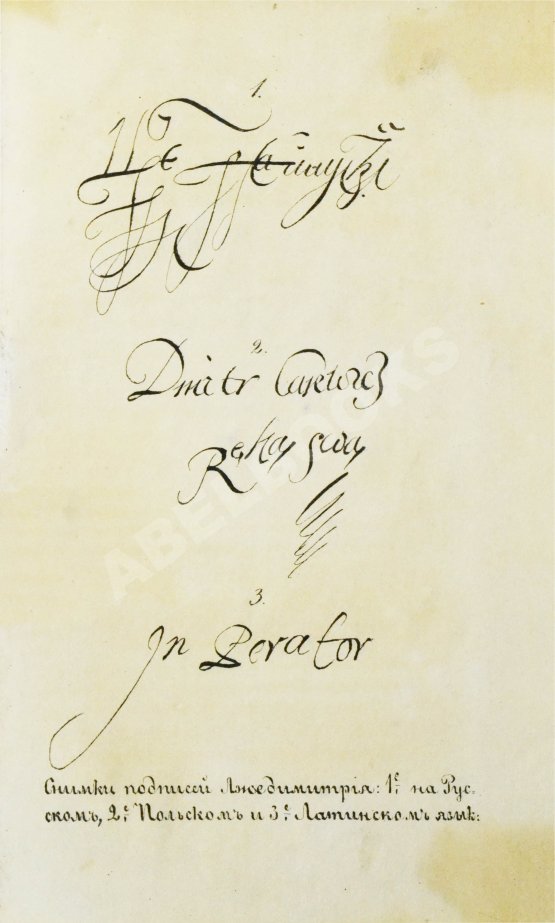 1.
2.
Dmitr Carewicz
Ręką swą
3.
In Perator
Снимки подписей Лжедимитрія: 1е на Рус-
скомъ, 2е Польскомъ и 3е Латинскомъ язык:
ABELBOOKS